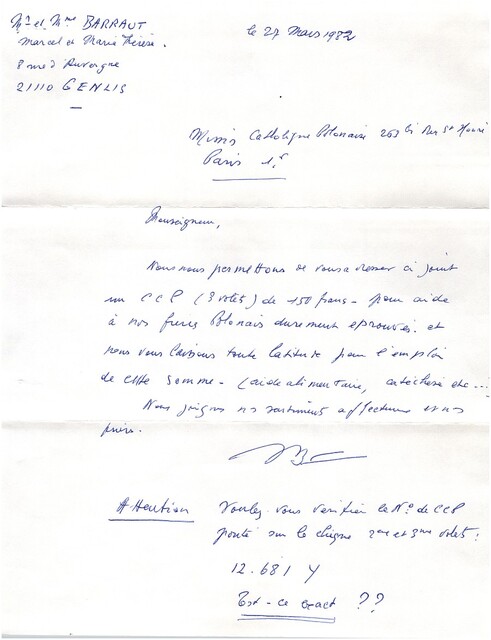 Mr et Mme BARRAUT
Marcel et Marie Thérèse.
8 rue d'Auvergne
21110 GENLIS
le 27 Mars 1982
Mission Catholique Polonaise 263 bis Rue St Honoré
Paris 1er
Monseigneur,
Nous nous permettons de vous adresser ci joint
un CCP (3 volets) de 150 francs - pour aide
à nos frères Polonais durement éprouvés. et
nous vous laissons toute latitude pour l'emploi
de cette somme - (aide alimentaire, catéchèse etc...
Nous joignons nos sentiments affectueux et nos
prières.
Attention Voulez-vous vérifier le No de CCP
porté sur le chèque 2ème et 3ème volets :
12.681 Y
Est-ce exact ??